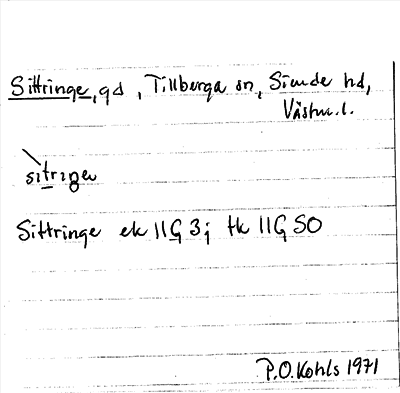 Sittringe, gd, Tillberga sn, Siende hd,
Västm.l.
sitringe
Sittringe ek 11G 3; tk 11G SO
P.O. Kohls 1971